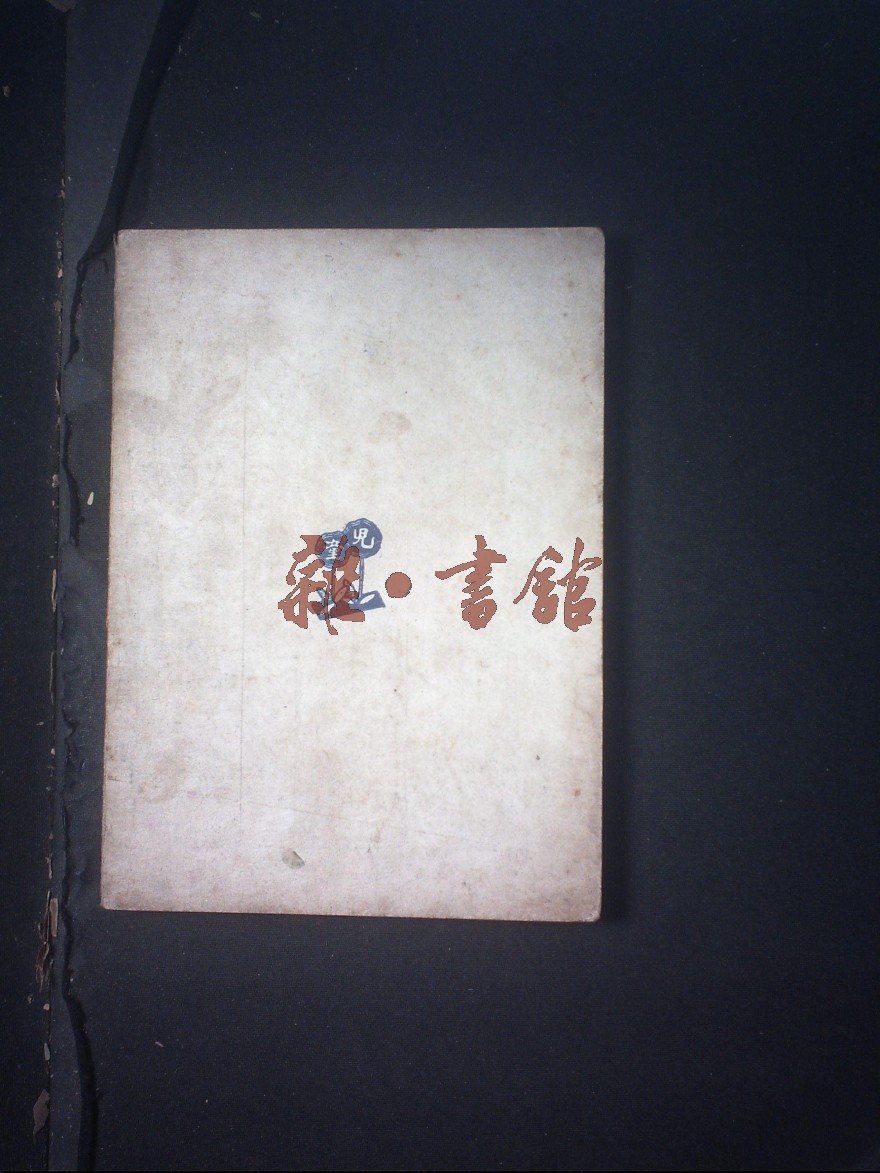 兒童
雜·書館